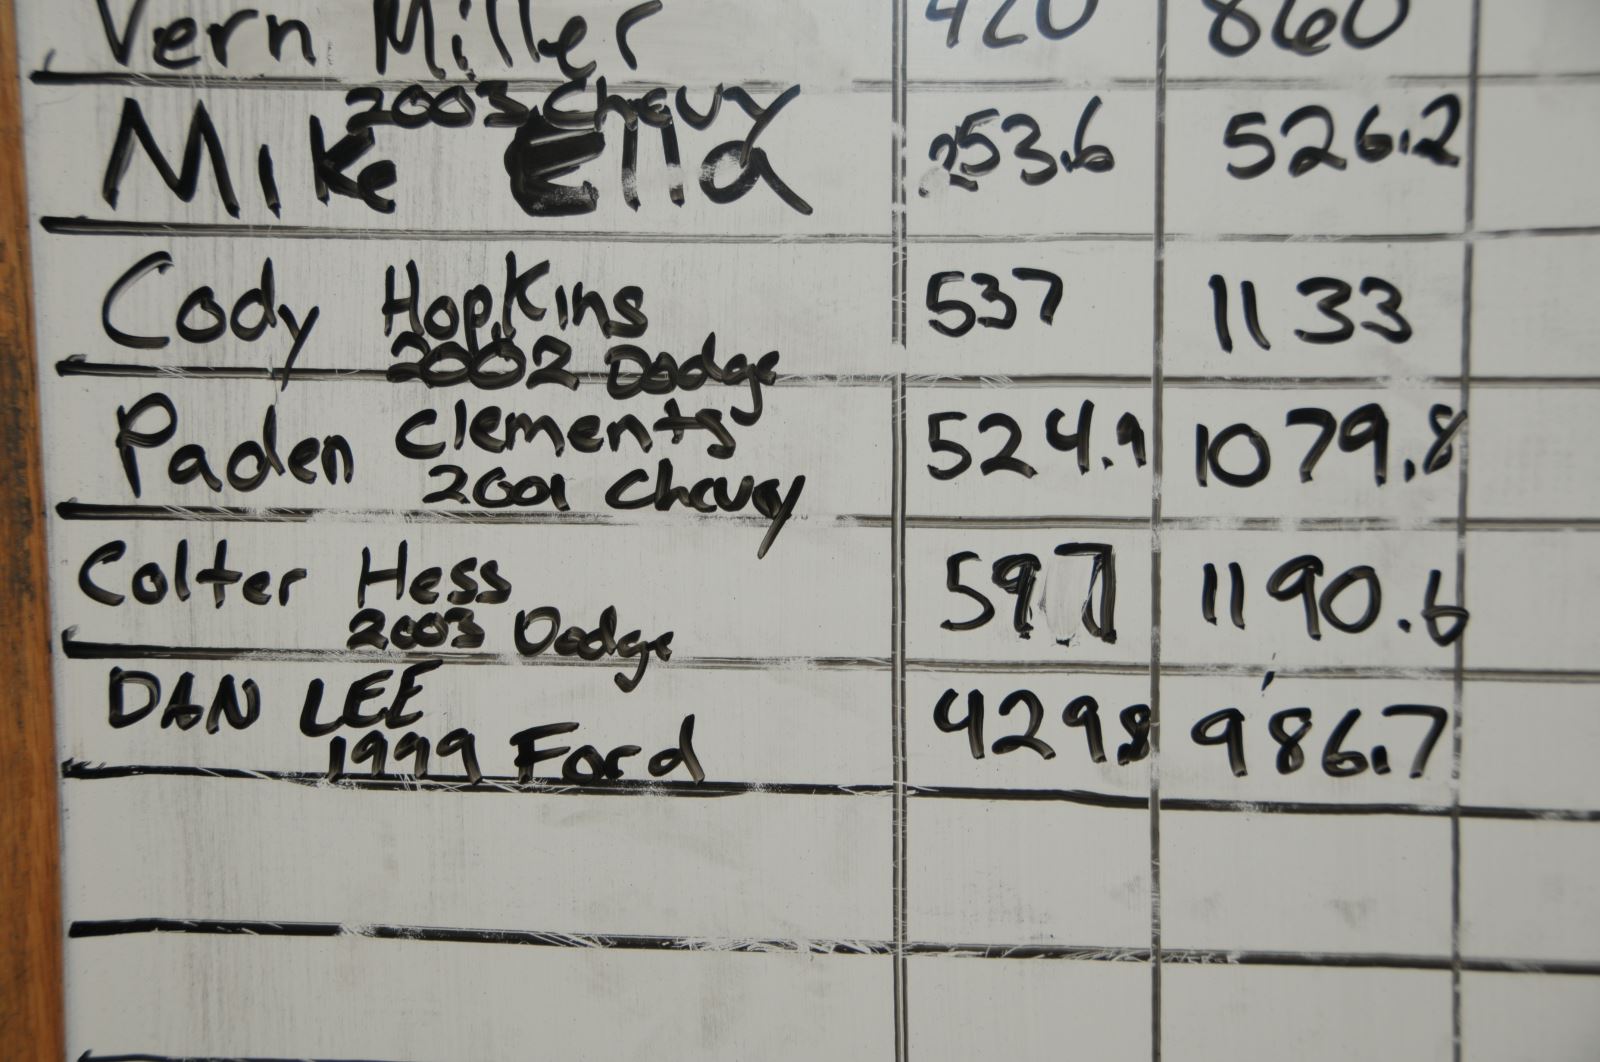 Vern Miller 420 860
2003 Chevy
Mike Ella 253.6 526.2
Cody Hopkins 537 1133
2002 Dodge
Paden Clements 524.9 1079.8
2001 Chevy
Colter Hess 597 1190.6
2003 Dodge
DAN LEE 429.8 986.7
1999 Ford